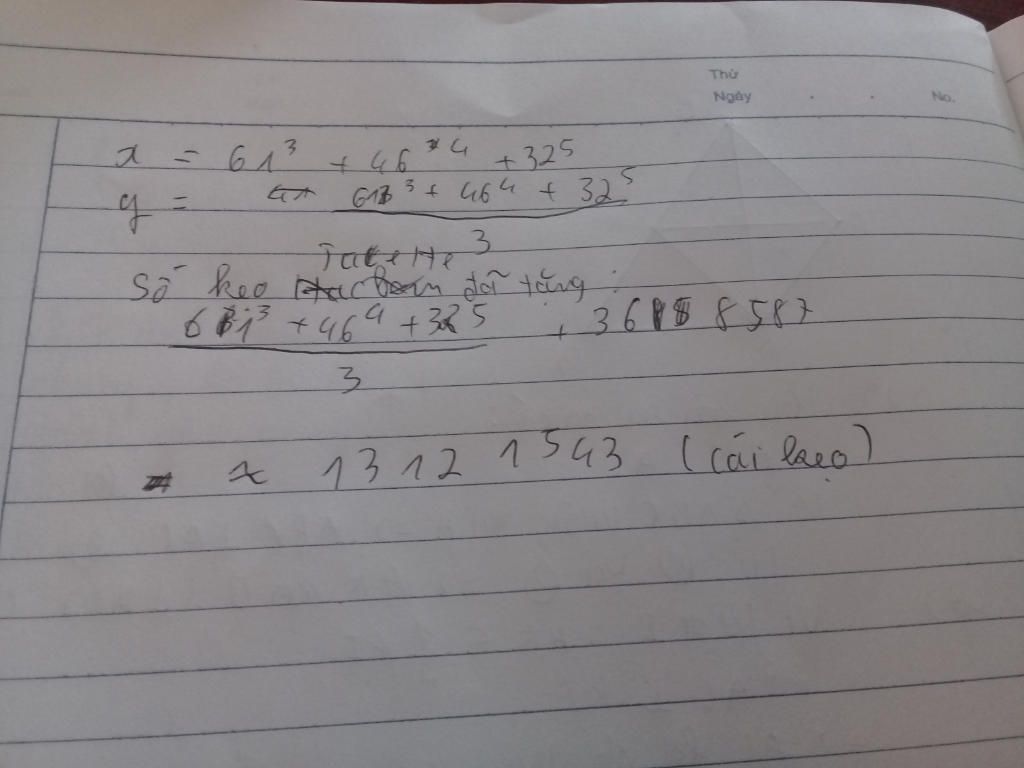 Thứ
Ngày . . No.
x = 61³ + 46⁴ + 32⁵
y = 61³ + 46⁴ + 32⁵
3
Số kẹo đã tặng :
61³ + 46⁴ + 32⁵
3
≈ 13121543 (cái kẹo)